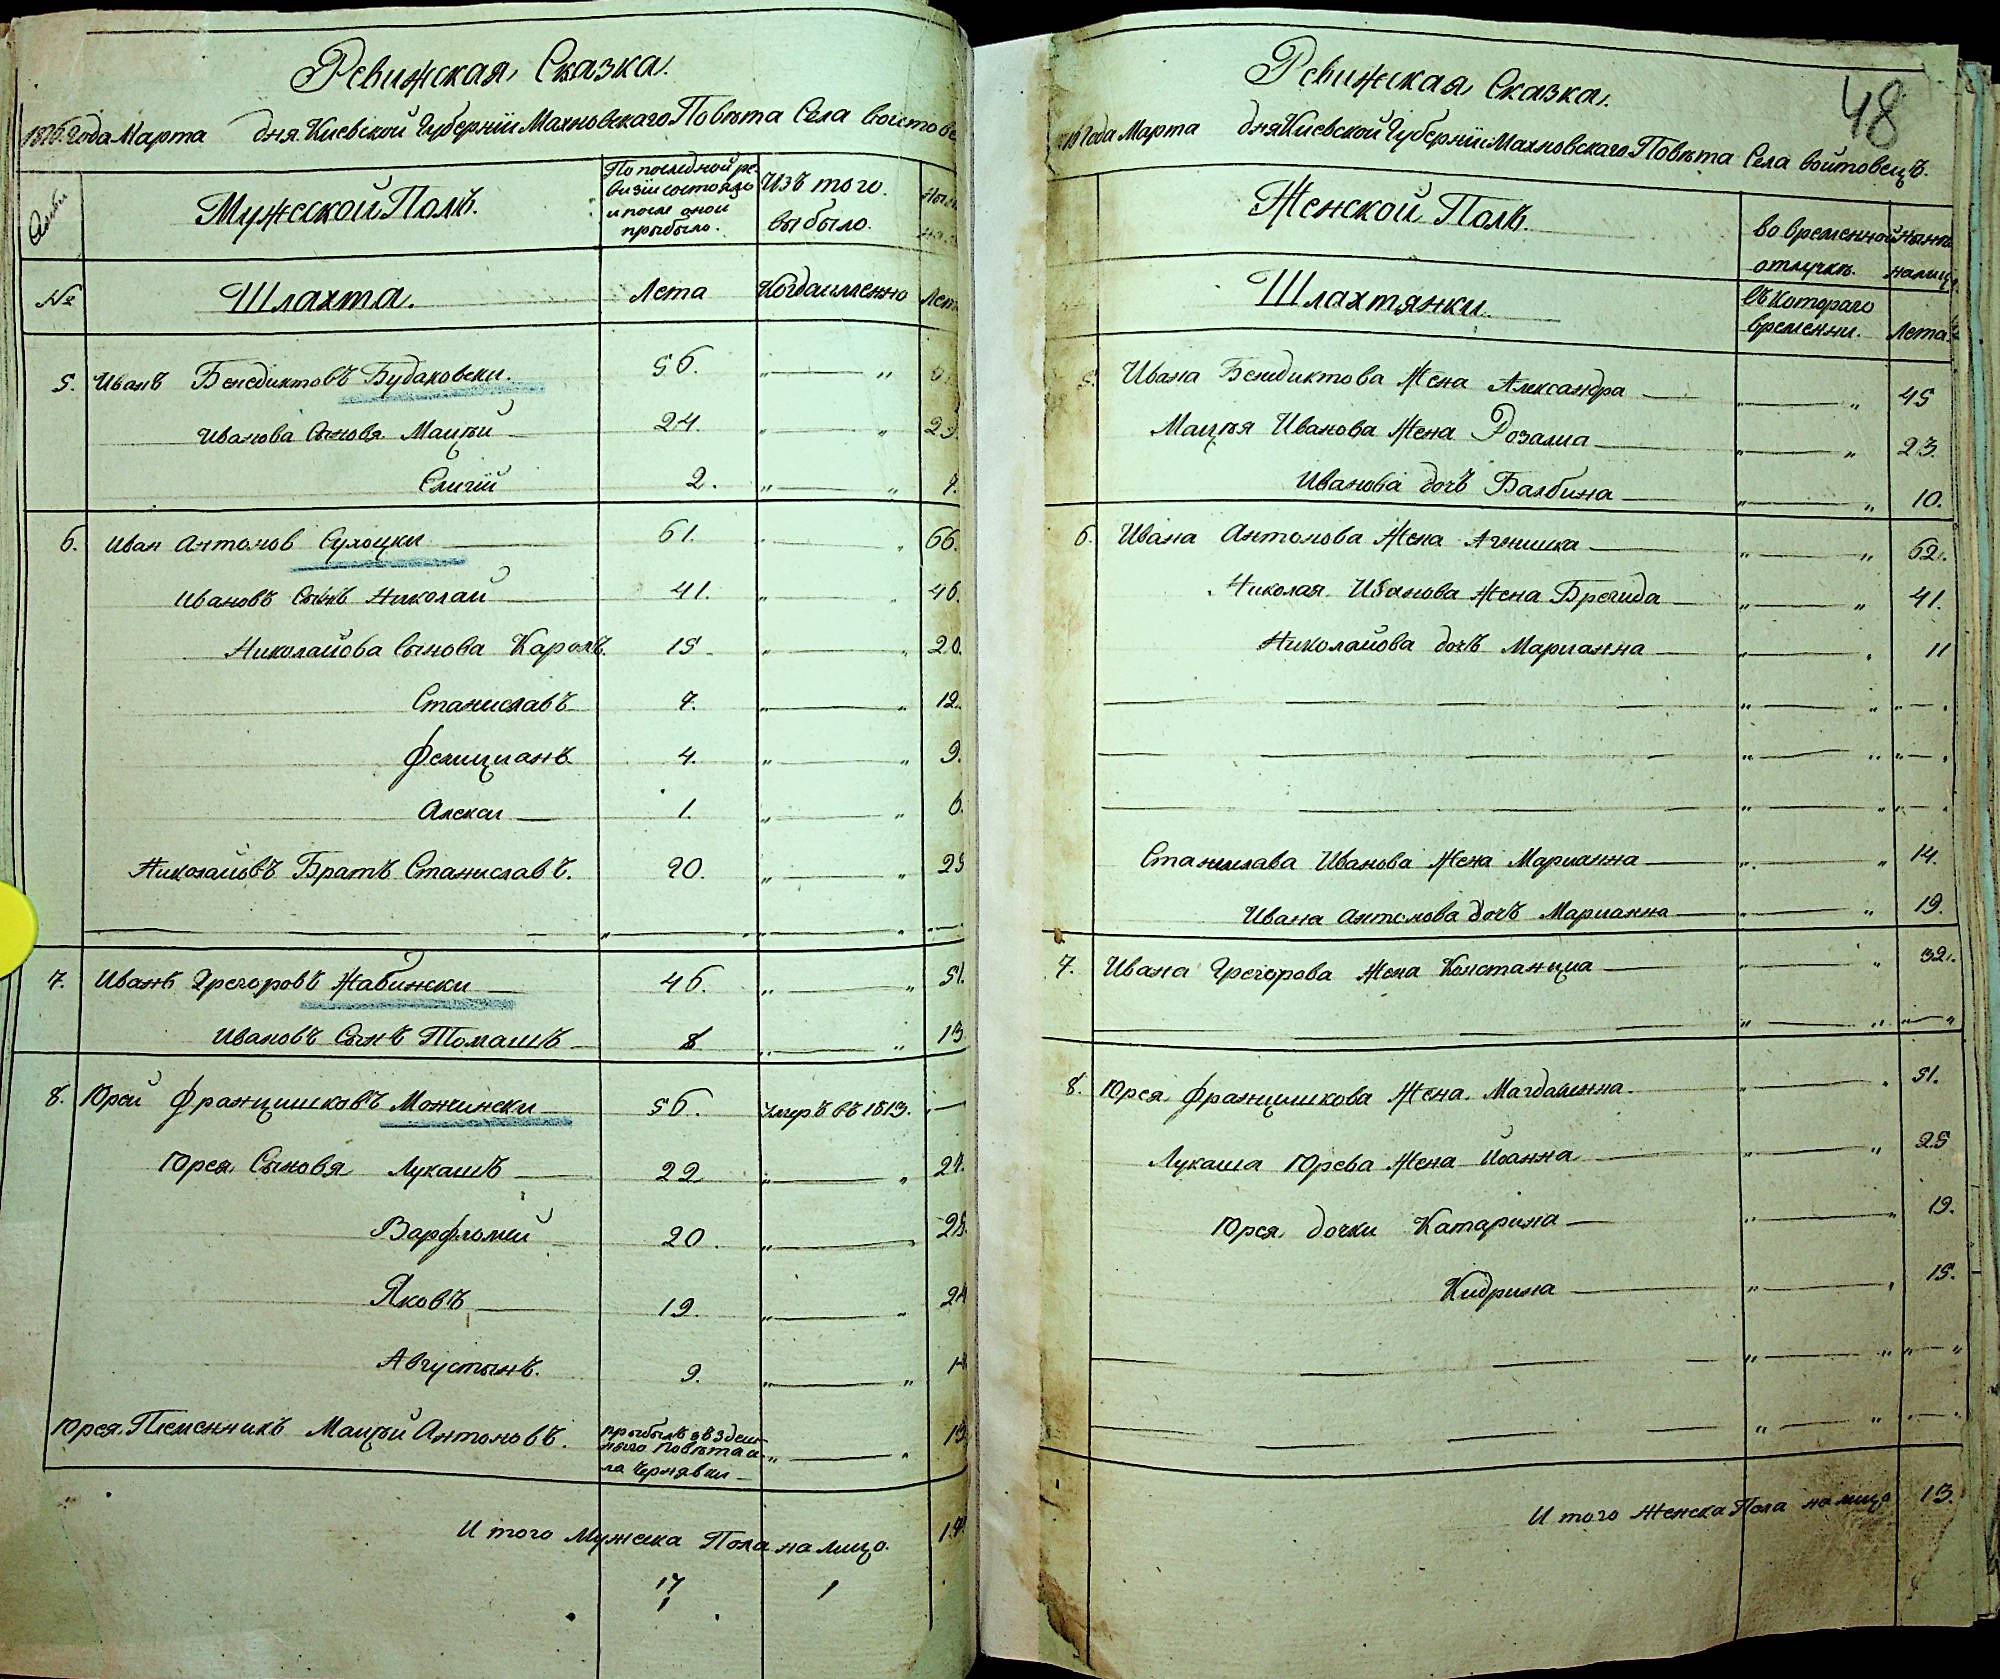 Ревижская Сказка.
1816 Года Марта дня Киевской Губернии Махновскаго Повѣта Села Войтове
Мужеской Полъ.
По последной ре-
визии состояло
и после оной
прыбыло.
Изъ того
выбыло.
№
Шляхта.
Лета
Когда именно
Лет
5. Иванъ Бенедиктовъ Будаковски. 56. „ „
Иванова Сыновя Мацѣй 24. „ „ 29.
Елигій 2. „ „ 7.
6. Иван Антонов Сулоцки 61. „ „ 66.
Ивановъ Сынъ Николай 41. „ „ 46.
Николайова Сынова Кароль. 15 „ „ 20.
Станиславъ 7. „ „ 12.
Фелицианъ 4. „ „ 9.
Алекси 1. „ „ 6.
Николайовъ Братъ Станиславъ. 20. „ „ 25
7. Иванъ Грегоровъ Жабински 46. „ „ 51.
Ивановъ Сынъ Томашъ 8 „ „ 13
8. Юрей Францишковъ Мончински 56. умръ въ 1813. „
Юрея Сыновя Лукашъ 22 „ „ 27.
Варфломей 20. „ „ 25.
Яковъ 19. „ „ 24
Августынъ. 9. „ „ 14
Юрея Племенникъ Мацѣй Антоновъ.
прыбылъ з здеш-
няго Повѣта се-
ла Чернявки
„ „ 13
И того Мужеска Пола на лицо. 17
17 1
48
Ревижская Сказка.
16 Года Марта дня Киевской Губернии Махновскаго Повѣта Села Войтовецъ.
Женской Полъ.
во временной
отлучкѣ.
нынѣ
на лицо
Шляхтянки.
съ котораго
времени.
Лета.
5. Ивана Бенедиктова Жена Александра „ „ 45
Мацѣя Иванова Жена Розалиа „ „ 23.
Иванова дочъ Балбина „ „ 10.
6. Ивана Антонова Жена Агнишка „ „ 62.
Николая Иванова Жена Брегида „ „ 41.
Николайова дочъ Марианна „ „ 11
Станислава Иванова Жена Марианна „ „ 14.
Ивана Антонова дочъ Марианна „ „ 19.
7. Ивана Грегорова Жена Констанциа „ „ 32.
8. Юрея Францишкова Жена Магдаленна. „ „ 51.
Лукаша Юрева Жена Иоанна „ „ 25
Юрея дочки Катарина „ „ 19.
Кидрина „ „ 15.
И того Женска Пола на лицо 13.